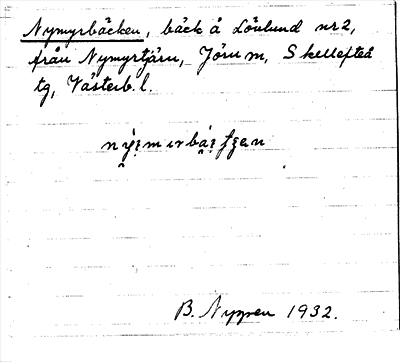 Nymyrbäcken, bäck å Lövlund nr 2,
från Nymyrtjärn, Jörn m, Skellefteå
tg, Västerb. l.
B. Nyppen 1932.